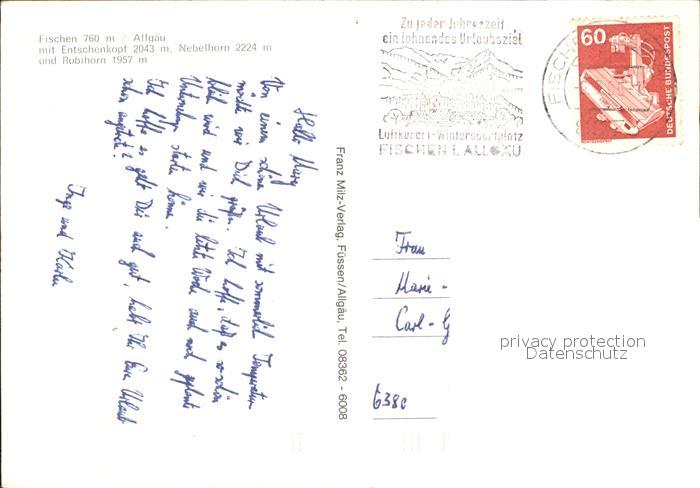 Fischen 760 m / Allgäu
mit Entschenkopf 2043 m, Nebelhorn 2224 m
und Rubihorn 1957 m
Zu jeder Jahreszeit
ein lohnendes Urlaubsziel
Luftkurort-Wintersportplatz
FISCHEN I. ALLGÄU
FISCHE
60
DEUTSCHE BUNDESPOST
Hallo Mary
Von einem schöne Urlaub mit sommerlich Temperaturen
möchte wir Dich grüßen. Ich hoffe, daß es so schön
bleibt wird und wir die letzte Woche auch noch geplante
Unternehmunge starte könne.
Ich hoffe es geht Dir auch gut, habt Ihr Eure Urlaub
schon
Inge und
Franz Milz-Verlag, Füssen/Allgäu, Tel. 08362 - 6008
Frau
Marie -
Carl - G
6380
privacy protection
Datenschutz